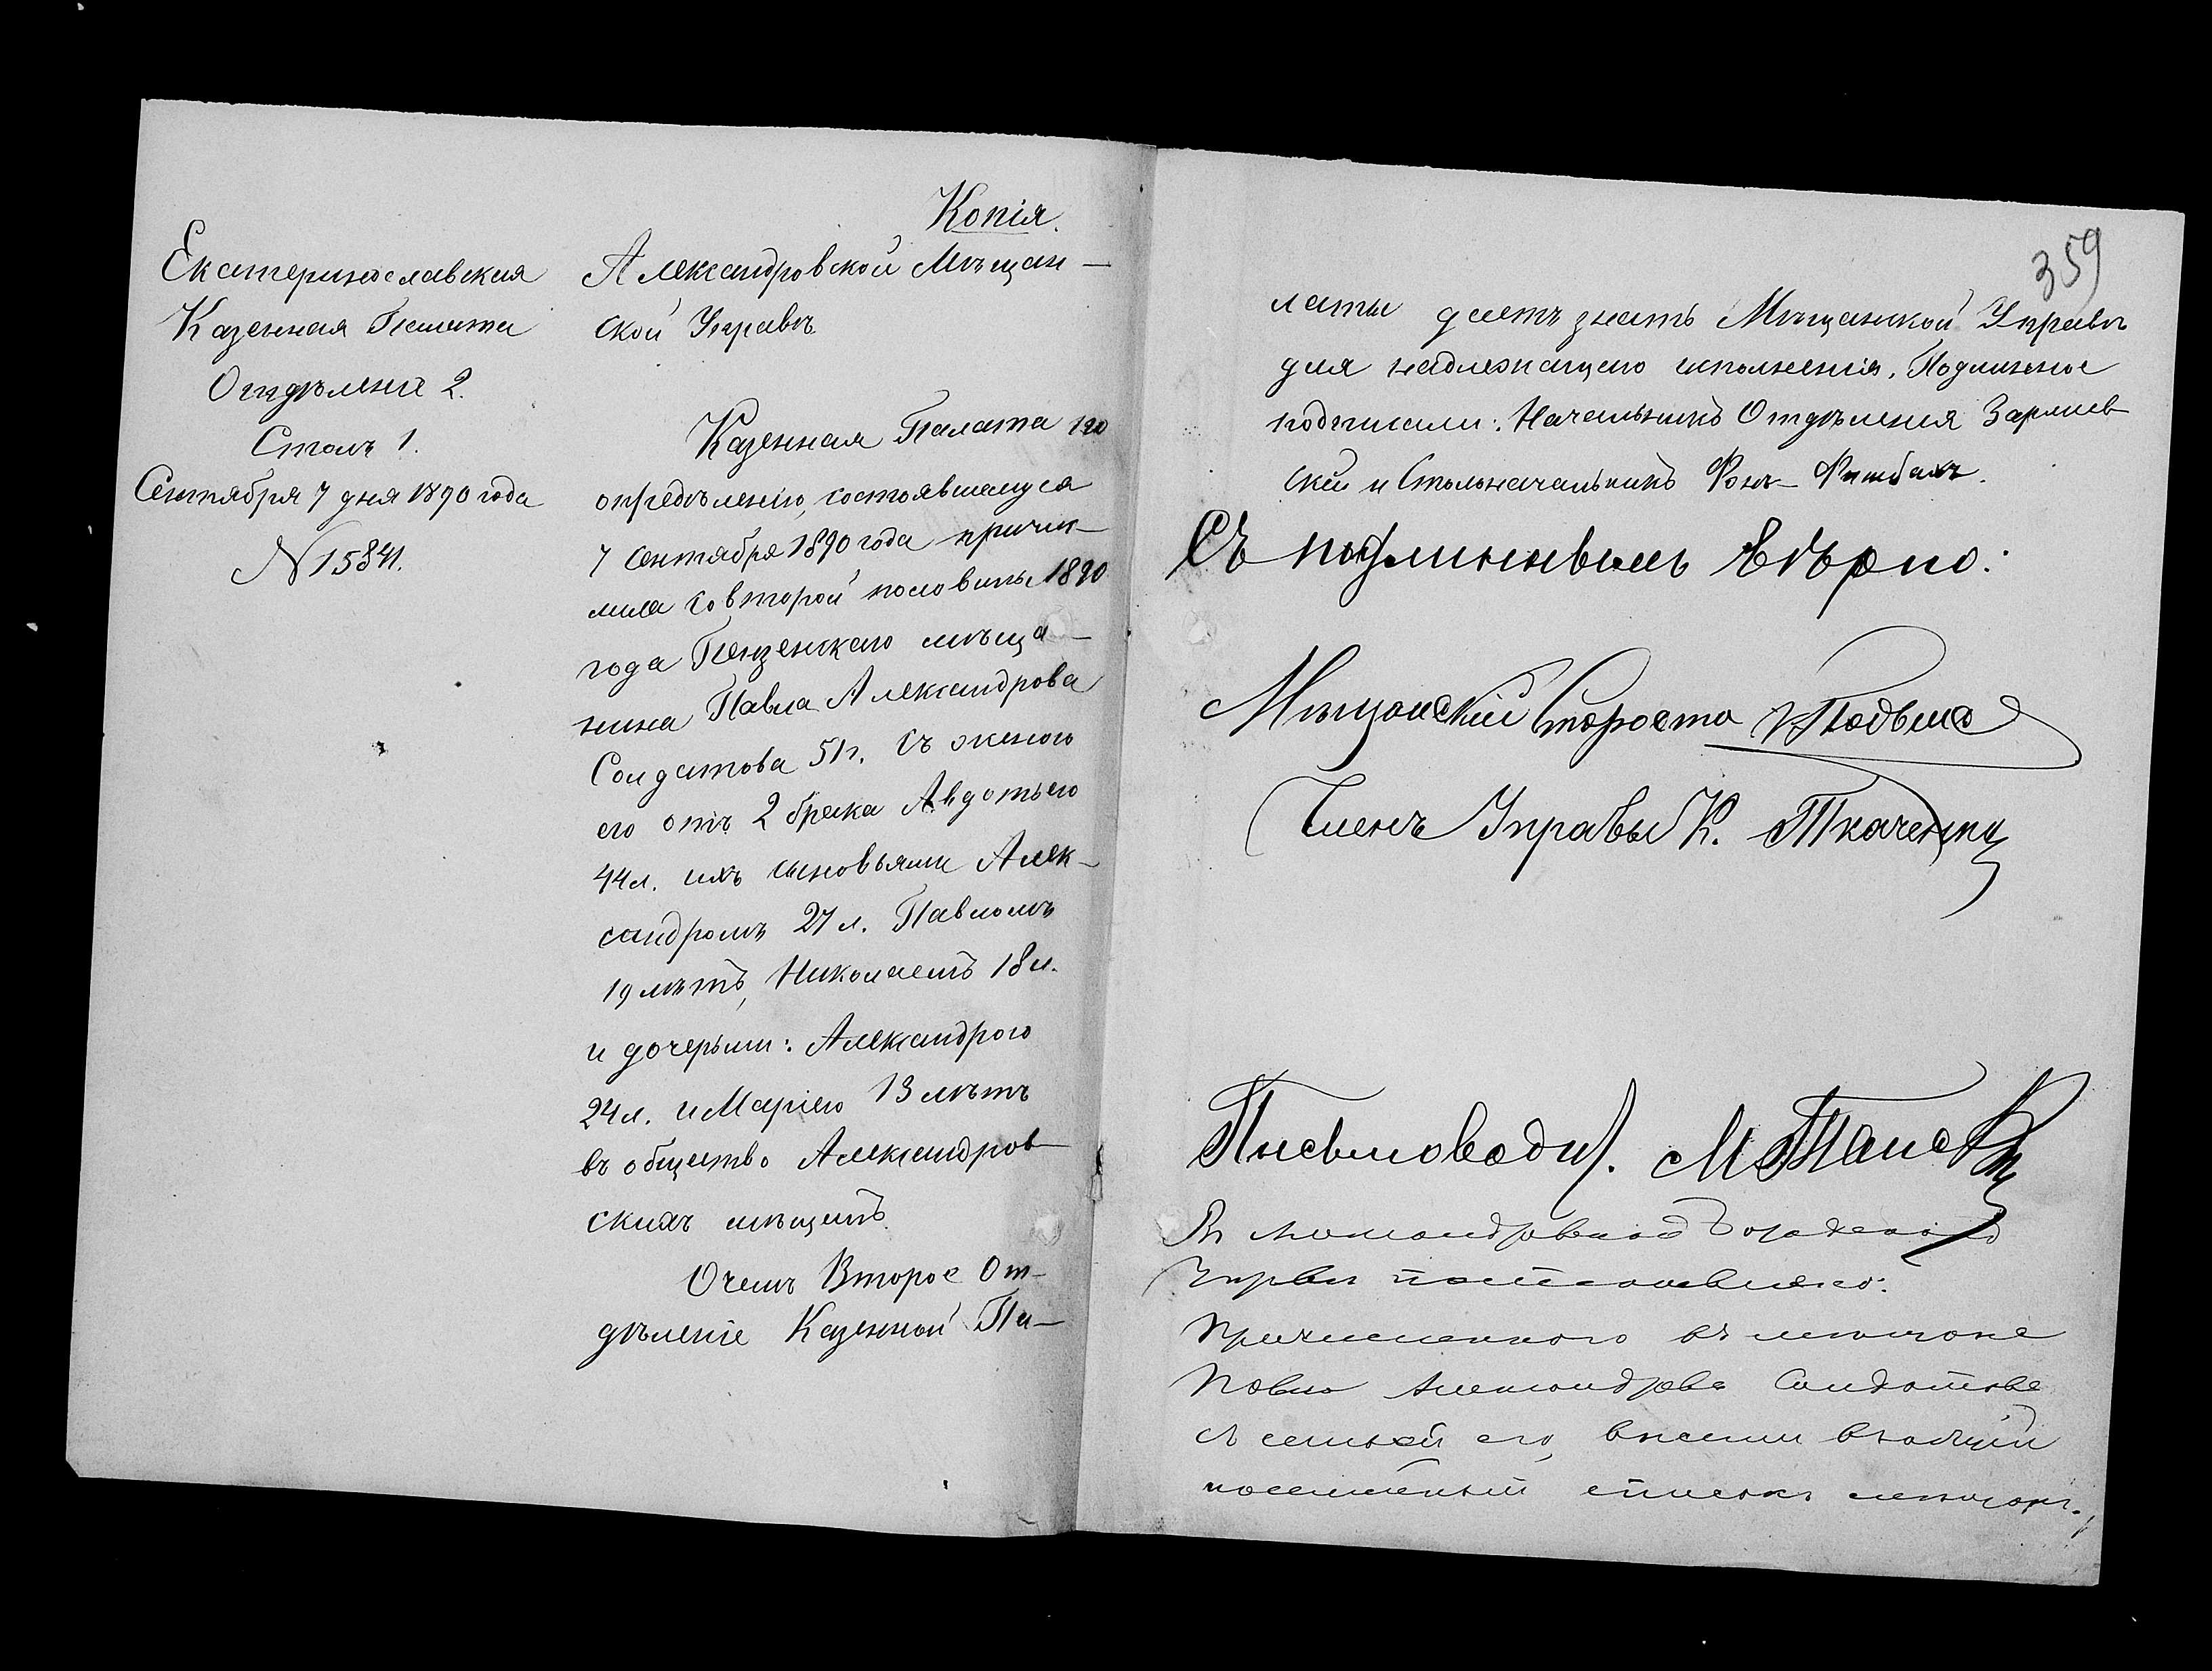 Копія.
Екатеринославская
Казенная Палата
Отдѣленіе 2.
Столъ 1.
Сентября 7 дня 1890 года
№ 15841.
Александровской Мѣщан-
ской Управѣ
Казенная Палата по
опредѣленію, состоявшемуся
7 Сентября 1890 года причис-
лила со второй половины 1890
года Пензенскаго мѣща-
нина Павла Александрова
Солдатова 51 г. съ женою
его отъ 2 брака Авдотьею
44 л. ихъ сыновьями Алек-
сандромъ 27 л. Павломъ
19 лѣтъ, Николаемъ 18 л.
и дочерьми: Александрою
24 л. и Маріею 13 лѣтъ
въ общество Александров-
скихъ мѣщанъ.
О чемъ Второе От-
дѣленіе Казенной Па-
359
латы даетъ знать Мѣщанской Управѣ
для надлежащего исполненія. Подлинное
подписали: Начальникъ Отдѣленія
и Столоначальникъ Фонъ-
Съ подлиннымъ вѣрно:
Мѣщанскій Староста
Членъ Управы К. Ткаченко
Письмоводит. М
В Александровской Городской
Управѣ постановлено:
Причисленного въ мѣщане
Павла Александрова Солдатова
съ семьей его, внести въ общій
посемейный списокъ мѣщанъ.